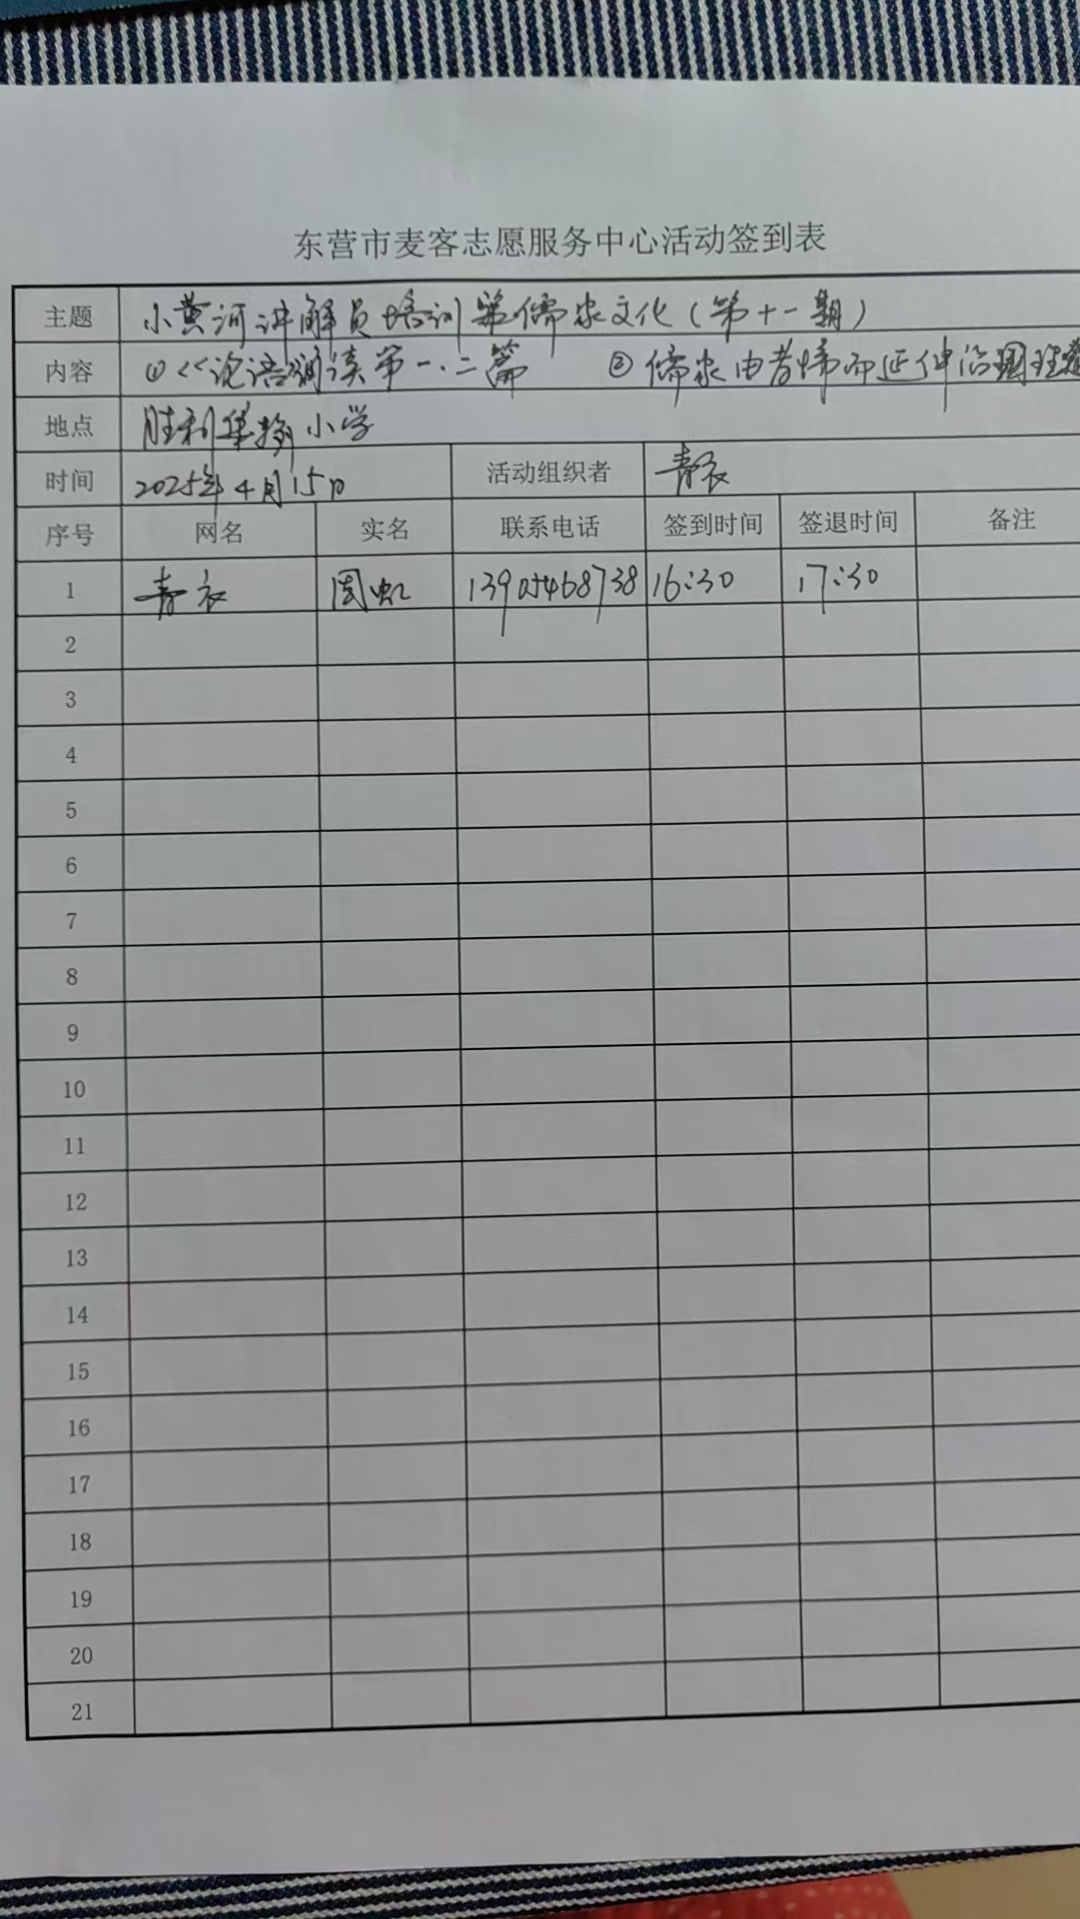 东营市麦客志愿服务中心活动签到表
主题 小黄河讲解员培训 儒家文化（第十一期）
内容 ①《论语》诵读第一.二篇 ② 儒家由孝悌而延伸治国理
地点 胜利小学
时间 2025年4月15日 活动组织者 青衣
序号 网名 实名 联系电话 签到时间 签退时间 备注
1 青衣 周虹 13905468738 16:30 17:30
2
3
4
5
6
7
8
9
10
11
12
13
14
15
16
17
18
19
20
21